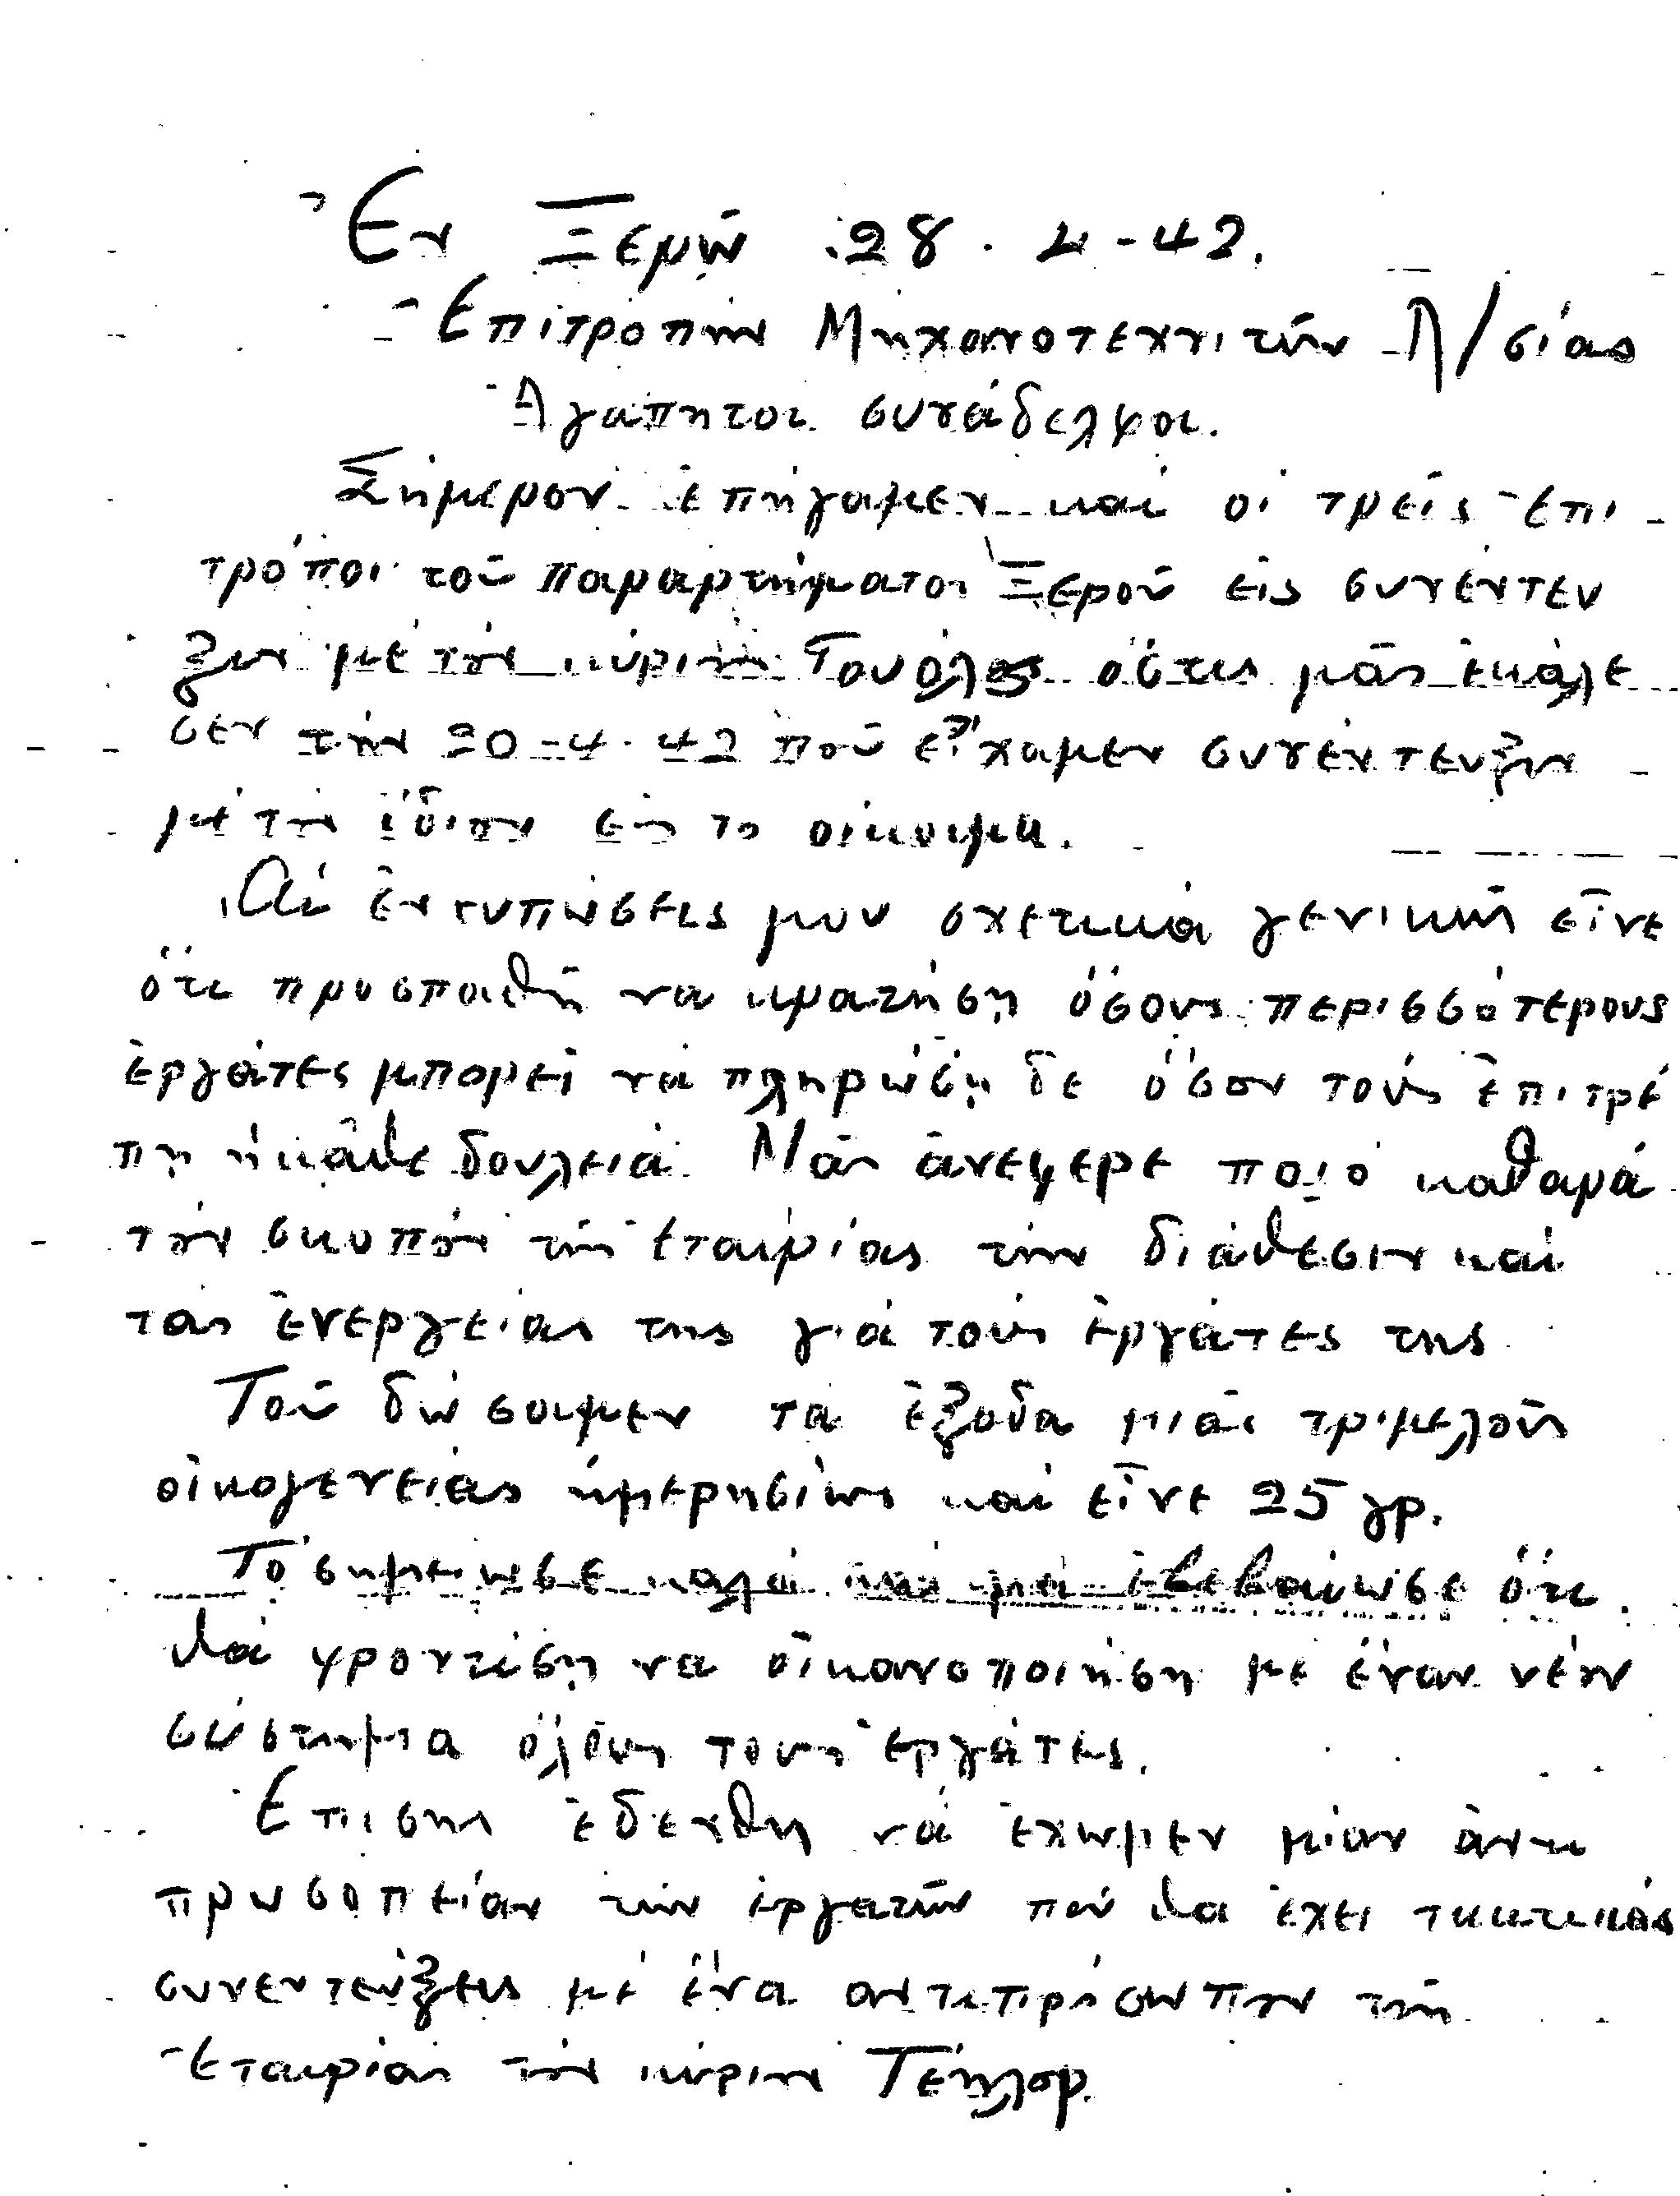 Ἐν Ξερῷ 28. 4-42.
Ἐπιτροπὴν Μηχανοτεχνιτῶν Λ/σίας
Ἀγαπητοι συνάδελφοι.
Σήμερον ἐπήγαμεν καὶ οἱ τρεῖς ἐπι-
τρόποι τοῦ παραρτήματος Ξεροῦ εἰς συνέντευ
ξιν μὲ τὸν κύριον Τουόλας ὅστις μᾶς ἐκάλε
σεν τὴν 20-4-42 ποῦ εἴχαμεν συνέντευξιν
μὲ τὸν ἴδιον εἰς το οἴκημα.
Αἱ ἐντυπώσεις μου σχετικὰ γενικῆς εἶνε
ὅτι προσπαθῆ να κρατήση ὅσους περισσότερους
ἐργάτες μπορεῖ νὰ πληρώση δε ὅσον τοὺς ἐπιτρέ
πη ἡ κάθε δουλειά. Μᾶς ἀνεφερε ποιό καθαρά
τὸν σκοπὸν τῆς ἑταιρίας τὴν διάθεσιν καὶ
τας ἐνεργείας της γιὰ τοὺς ἐργάτες της.
Τοῦ δώσαμεν τα ἔξοδα μιᾶς τριμελοῦς
οἰκογενείας ἡμερησίως καὶ εἶνε 25 γρ.
Τὸ σημείωσε καλὰ καὶ μᾶς ἐβεβαίωσε ὅτι
θὰ φροντίση να οἰκανοποιήση μὲ ἕναν νέον
σύστημα ὅλους τους ἐργάτες.
Ἐπισης ἐδεχθη νὰ ἔχωμεν μίαν ἀντι
πρωσοπείαν τῶν ἐργατῶν ποῦ θα ἔχει τακτικὰς
συνεντεύξεις μὲ ἕνα αντιπρόσωπον τῆς
ἑταιρίας τὸν κύριον Τέηλορ.